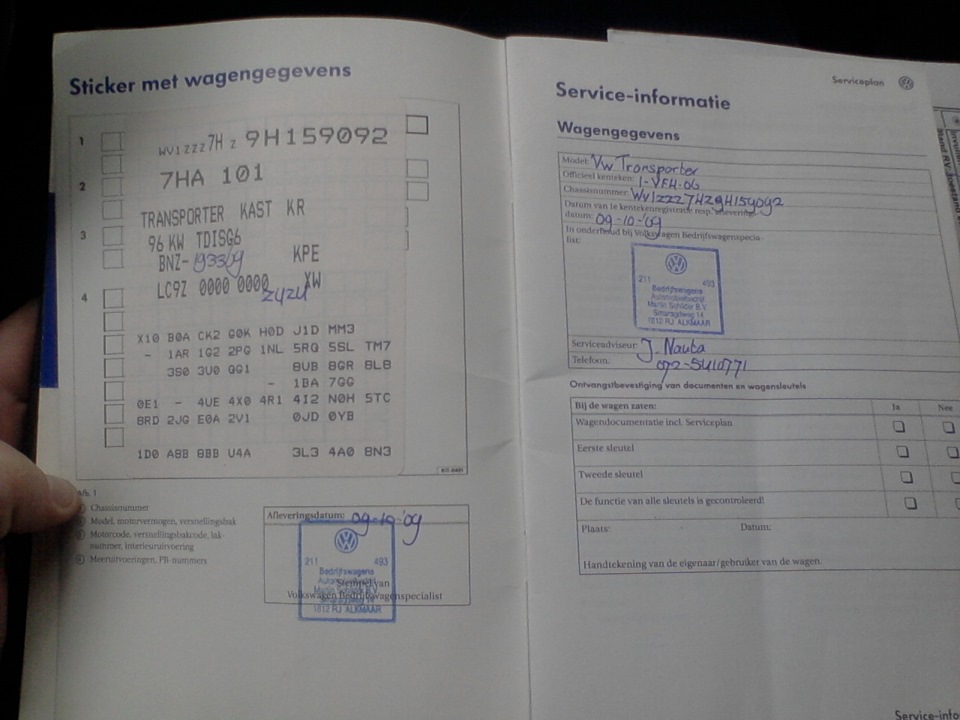 Sticker met wagengegevens
1
WV1ZZZ7H Z 9H159092
2
7HA 101
TRANSPORTER KAST KR
3
96 KW TDI5G6
BNZ- 19339 KPE
LC9Z 0000 0000 XW
ZYZU
4
X10 B0A CK2 G0K H0D J1D MM3
- 1AR 1G2 2PG 1NL 5RQ 5SL TM7
3S0 3U0 QG1 8UB 8GR 8LB
- 1BA 7GG
0E1 - 4UE 4X0 4R1 4I2 N0H 5TC
8RD 2JG E0A 2V1 0JD 0YB
1D0 A8B 8BB U4A 3L3 4A0 8N3
Afb. 1
Chassisnummer
Model, motorvermogen, versnellingsbak
Motorcode, versnellingsbakcode, lak-
nummer, interieuruitvoering
Meeruitvoeringen, PR-nummers
Afleveringsdatum: 09-10-'09
211 493
Bedrijfswagens
Stempel van
Volkswagen Bedrijfswagenspecialist
1812 RJ ALKMAAR
Serviceplan
Service-informatie
Wagengegevens
Model: VW Transporter
Officieel kenteken: 1-VFH-06
Chassisnummer: WV1ZZZ7HZ9H159092
Datum van te kentekenregistratie resp. aflevering-
datum: 09-10-'09
In onderhoud bij Volkswagen Bedrijfswagenspecia-
list:
211 493
Bedrijfswagens
Automobielbedrijf
Martin Schilder B.V.
Smaragdweg 14
1812 RJ ALKMAAR
Serviceadviseur: J. Nauta
Telefoon: 072-5410771
Ontvangstbevestiging van documenten en wagensleutels
Bij de wagen zaten: Ja Nee
Wagendocumentatie incl. Serviceplan
Eerste sleutel
Tweede sleutel
De functie van alle sleutels is gecontroleerd!
Plaats: Datum:
Handtekening van de eigenaar/gebruiker van de wagen.
Service-info